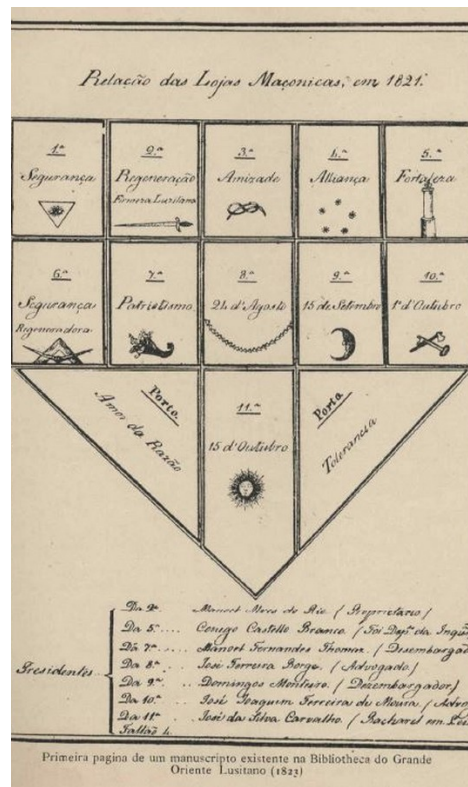 Relação das Lojas Maçonicas, em 1821.
1.ª
Segurança
2.ª
Regeneração
Firmeza Lusitana
3.ª
Amizade
4.ª
Alliança
5.ª
Fortaleza
6.ª
Segurança
Regeneradora
7.ª
Patriotismo
8.ª
24 d'Agosto
9.ª
15 de Setembro
10.ª
1º d'Outubro
Porto.
Amor da Razão
11.ª
15 d'Outubro
Porto
Tolerancia
Presidentes
Da 2ª. Manoel (Proprietario)
Da 5ª. Conego Castello Branco. (Foi Depº. da
Da 7ª. Manoel Fernandes Thomaz. (Desembargad
Da 8ª. José Ferreira Borges. (Advogado)
Da 9ª. Domingos Monteiro. (Dezembargador)
Da 10ª. José Joaquim Ferreira de Moura. (Advo
Da 11ª. José da Silva Carvalho. (Bacharel em
Faltão 4.
Primeira pagina de um manuscripto existente na Bibliotheca do Grande
Oriente Lusitano (1823)